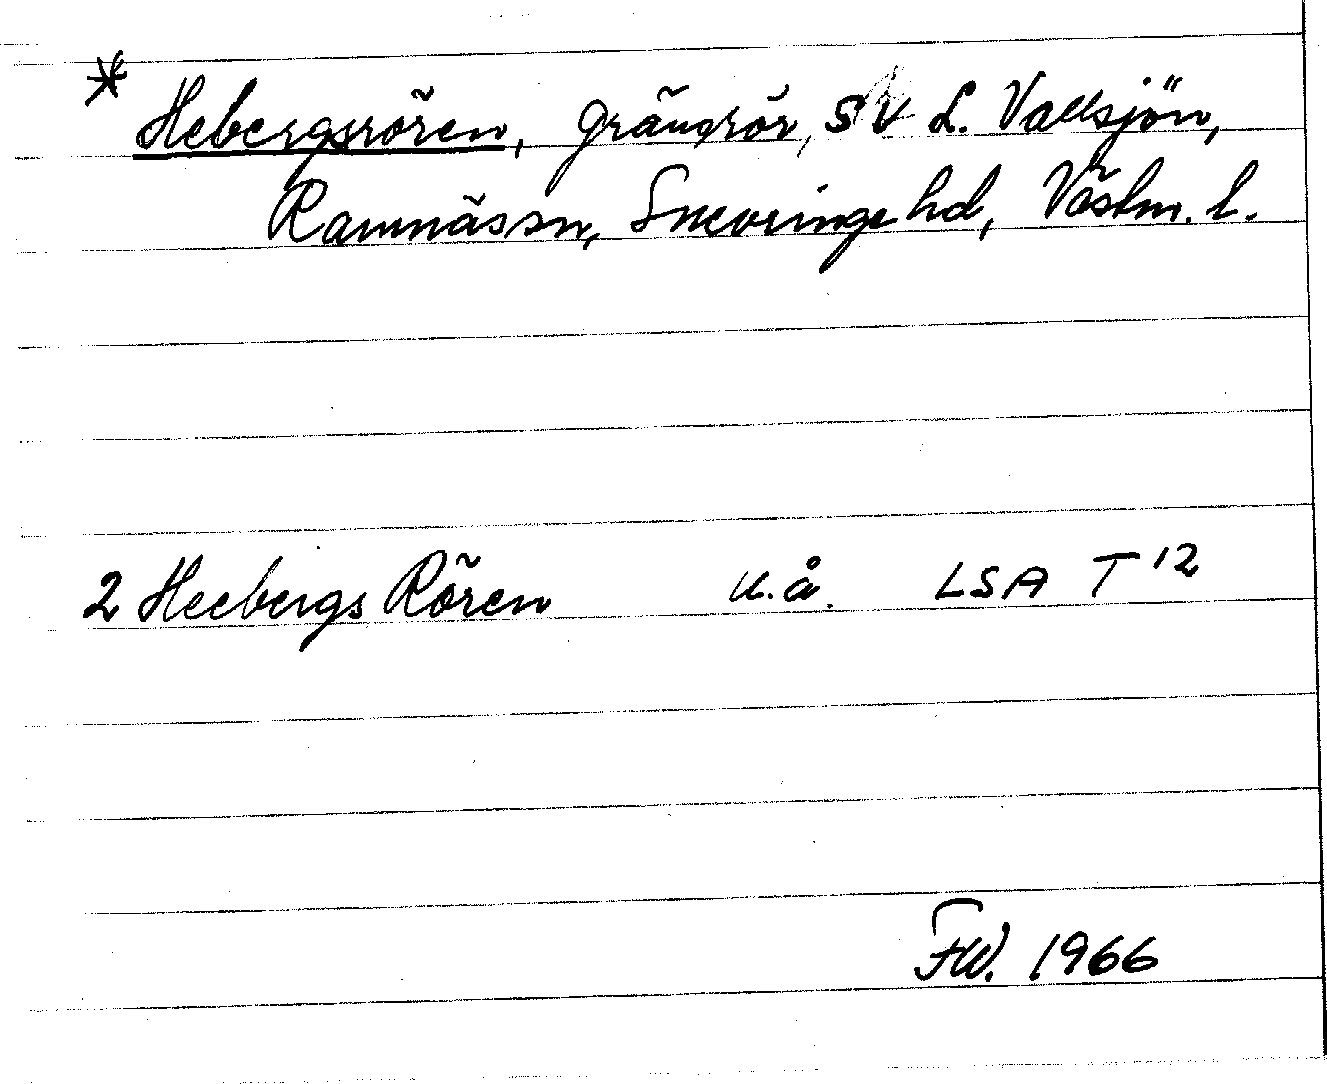 * Hebergsrören, gränsrör, SV L. Vallsjön,
Ramnäs sn, Snevringe hd, Västm. l.
2 Heebergs Rören u.å. LSA T 12
FW. 1966